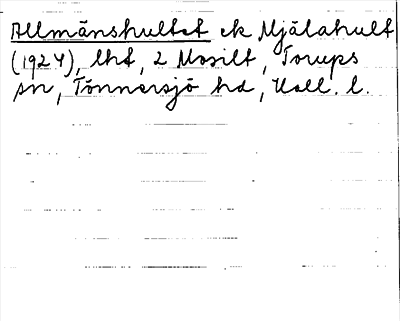 Allmänshultet ek Mjälahult
(1924), lht, 2 Mosilt, Torups
sn, Tönnersjö hd, Hall. l.